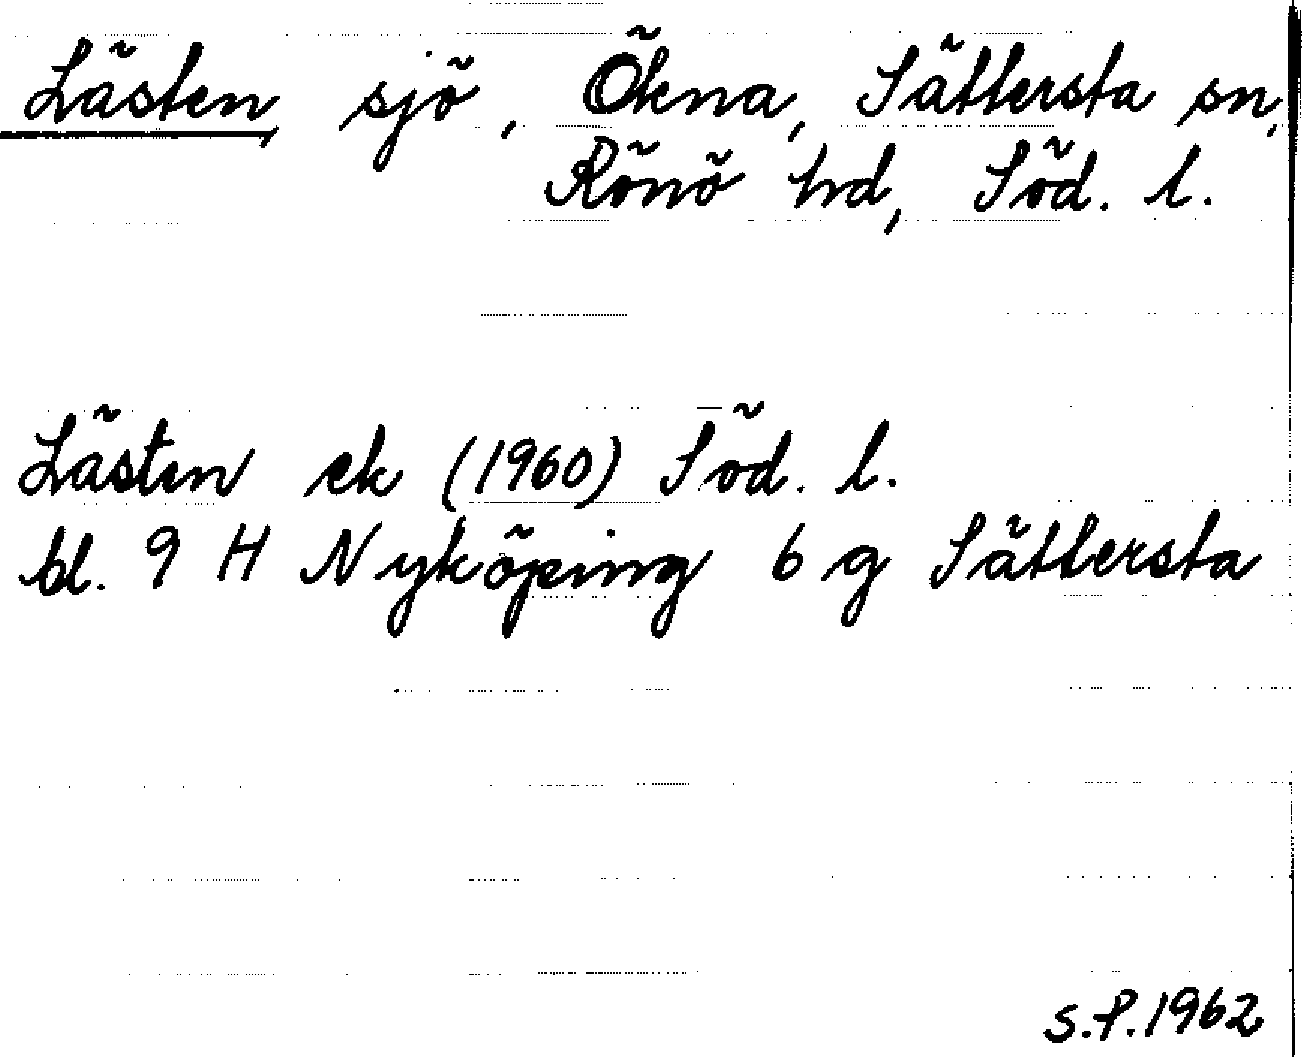 Lästen, sjö, Ökna, Sättersta sn,
Rönö hd, Söd. l.
Lästen ek (1960) Söd. l.
bl. 9 H Nyköping 6 g Sättersta
S.P. 1962